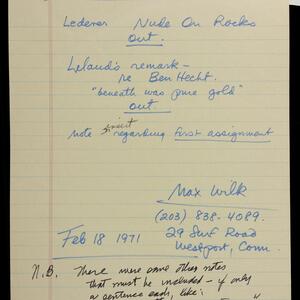 Lederer Nude On Rocks
out.
Leland's remark -
re Ben Hecht.
"beneath was pure gold"
out
note insert regarding first assignment
Max Wilk
(203) 838-4089.
Feb 18 1971
29 Surf Road
Westport, Conn.
N.B. There were some other notes
that must be included - if only
a sentence each, like: